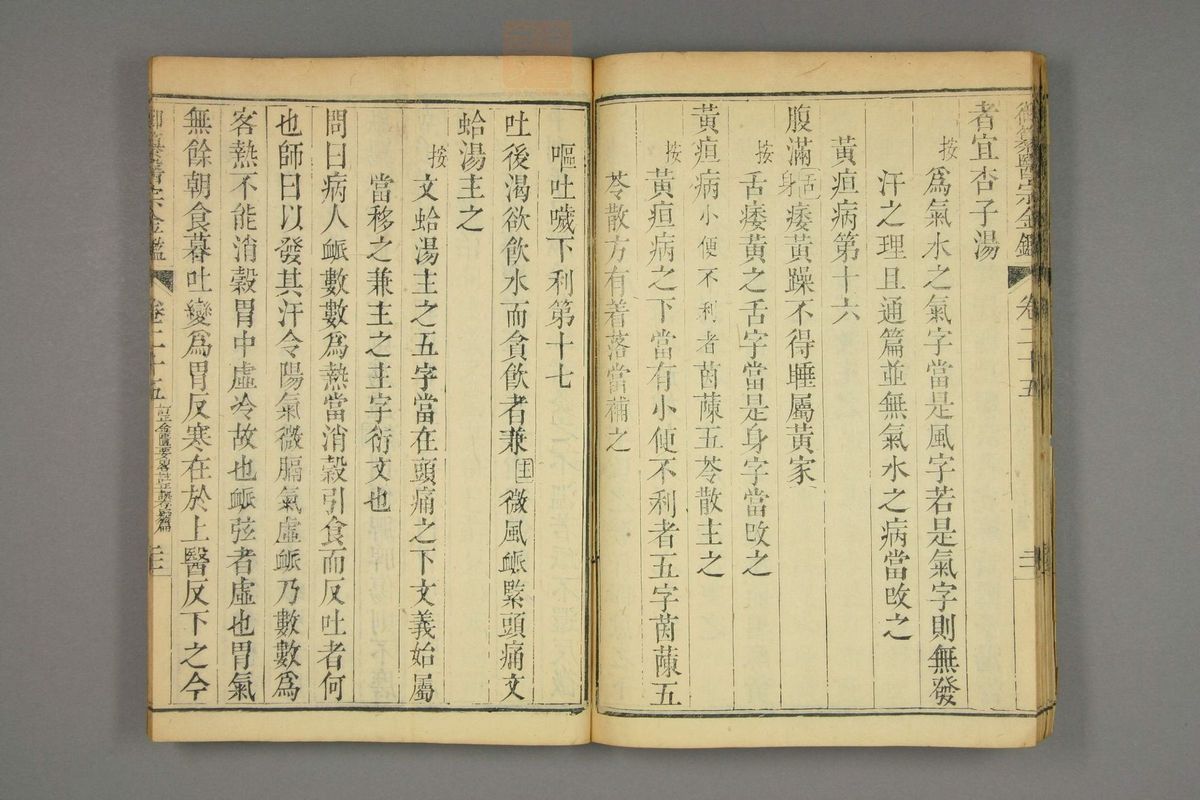 御纂醫宗金鑑 卷二十五
者宜杏子湯
按為氣水之氣字當是風字若是氣字則無發
汗之理且通篇並無氣水之病當改之
黃疸病第十六
腹滿舌身痿黃躁不得睡屬黃家
按舌痿黃之舌字當是身字當改之
黃疸病小便不利者茵蔯五苓散主之
按黃疸病之下當有小便不利者五字茵蔯五
苓散方有着落當補之
嘔吐噦下利第十七
吐後渴欲飲水而貪飲者兼主微風脈緊頭痛文
蛤湯主之
按文蛤湯主之五字當在頭痛之下文義始屬
當移之兼主之主字衍文也
問曰病人脈數數為熱當消穀引食而反吐者何
也師曰以發其汗令陽氣微膈氣虛脈乃數數為
客熱不能消穀胃中虛冷故也脈弦者虛也胃氣
無餘朝食暮吐變為胃反寒在於上醫反下之今
御纂醫宗金鑑 卷二十五